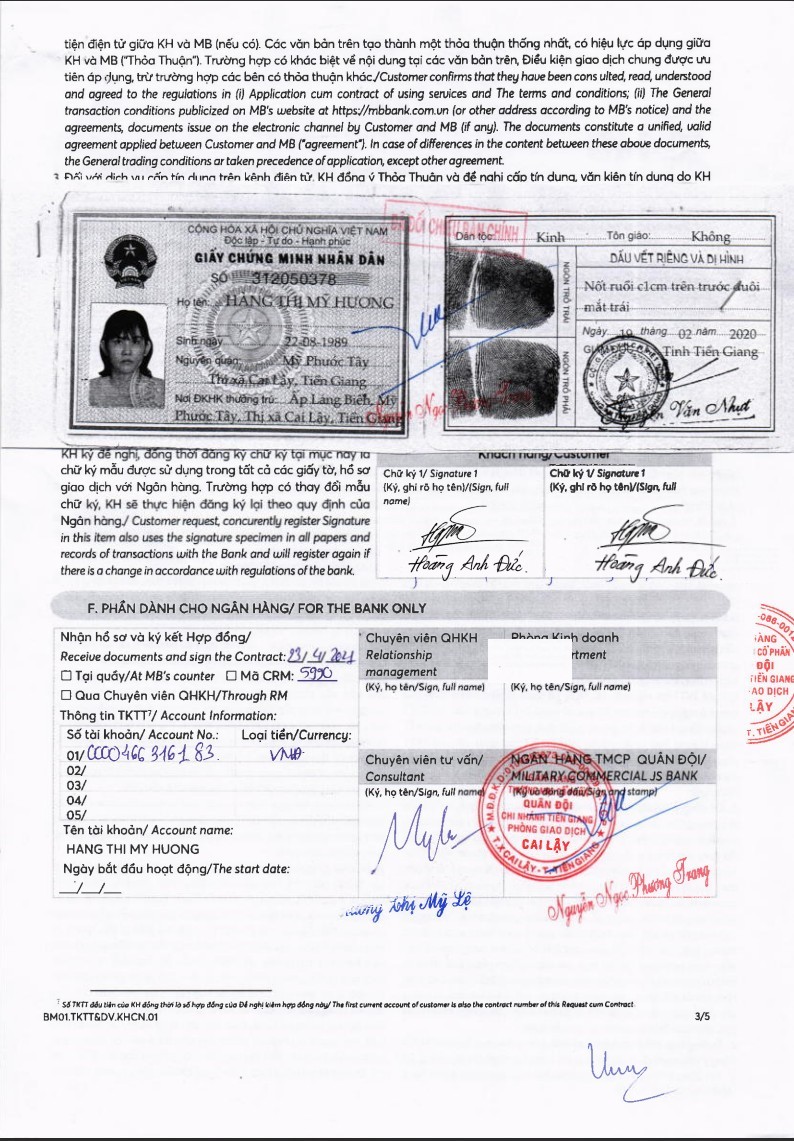 tiện điện tử giữa KH và MB (nếu có). Các văn bản trên tạo thành một thỏa thuận thống nhất, có hiệu lực áp dụng giữa
KH và MB ("Thỏa Thuận"). Trường hợp có khác biệt về nội dung tại các văn bản trên, Điều kiện giao dịch chung được ưu
tiên áp dụng, trừ trường hợp các bên có thỏa thuận khác./Customer confirms that they have been cons ulted, read, understood
and agreed to the regulations in (i) Application cum contract of using services and The terms and conditions; (ii) The General
transaction conditions publicized on MB's website at https://mbbank.com.vn (or other address according to MB's notice) and the
agreements, documents issue on the electronic channel by Customer and MB (if any). The documents constitute a unified, valid
agreement applied between Customer and MB ("agreement"). In case of differences in the content between these above documents,
the General trading conditions ar taken precedence of application, except other agreement.
3 Đối với dịch vụ cấp tín dụng trên kênh điện tử, KH đồng ý Thỏa Thuận và đề nghị cấp tín dụng, văn kiện tín dụng do KH
CỘNG HÒA XÃ HỘI CHỦ NGHĨA VIỆT NAM
Độc lập - Tự do - Hạnh phúc
GIẤY CHỨNG MINH NHÂN DÂN
SỐ 312050378
Họ tên: HANG THI MỸ HƯƠNG
Sinh ngày 22-08-1989
Nguyên quán: Mỹ Phước Tây
Thị xã Cai Lậy, Tiền Giang
Nơi ĐKHK thường trú: Ấp Láng Biển, Mỹ
Phước Tây, Thị xã Cai Lậy, Tiền Giang
ĐÃ ĐỐI CHIẾU BẢN CHÍNH
Dân tộc: Kinh Tôn giáo: Không
NGÓN TRỎ TRÁI
NGÓN TRỎ PHẢI
DẤU VẾT RIÊNG VÀ DỊ HÌNH
Nốt ruồi c1cm trên trước đuôi
mắt trái
Ngày 19 tháng 02 năm 2020
Tỉnh Tiền Giang
Nguyễn Văn Nhựt
Nguyễn Ngọc Phương Trang
KH ký đề nghị, đồng thời đăng ký chữ ký tại mục này là
chữ ký mẫu được sử dụng trong tất cả các giấy tờ, hồ sơ
giao dịch với Ngân hàng. Trường hợp có thay đổi mẫu
chữ ký, KH sẽ thực hiện đăng ký lại theo quy định của
Ngân hàng./ Customer request, concurently register Signature
in this item also uses the signature specimen in all papers and
records of transactions with the Bank and will register again if
there is a change in accordance with regulations of the bank.
Khách hàng/Customer
Chữ ký 1/ Signature 1
(Ký, ghi rõ họ tên)/(Sign, full
name)
Hoàng Anh Đức
Chữ ký 1/ Signature 1
(Ký, ghi rõ họ tên)/(Sign, full
Hoàng Anh Đức
F. PHẦN DÀNH CHO NGÂN HÀNG/ FOR THE BANK ONLY
Nhận hồ sơ và ký kết Hợp đồng/
Receive documents and sign the Contract: 23/4/2021
Tại quầy/At MB's counter Mã CRM: 5990
Qua Chuyên viên QHKH/Through RM
Thông tin TKTT7/ Account Information:
Số tài khoản/ Account No.: Loại tiền/Currency:
01/ 0000466316183 VNĐ
02/
03/
04/
05/
Tên tài khoản/ Account name:
HANG THI MY HUONG
Ngày bắt đầu hoạt động/The start date:
__/__/__
Chuyên viên QHKH
Relationship
management
(Ký, họ tên/Sign, full name)
Phòng Kinh doanh
rtment
(Ký, họ tên/Sign, full name)
Chuyên viên tư vấn/
Consultant
(Ký, họ tên/Sign, full name)
NGÂN HÀNG TMCP QUÂN ĐỘI/
MILITARY COMMERCIAL JS BANK
(Ký và đóng dấu/Sign and stamp)
QUÂN ĐỘI
CHI NHÁNH TIỀN GIANG
PHÒNG GIAO DỊCH
CAI LẬY
T.X CAI LẬY - T. TIỀN GIANG
Thị Mỹ Lệ
Nguyễn Ngọc Phương Trang
HÀNG
CỔ PHẦN
ĐỘI
TIỀN GIANG
GIAO DỊCH
LẬY
T. TIỀN GIANG
7 Số TKTT đầu tiên của KH đồng thời là số hợp đồng của Đề nghị kiêm hợp đồng này/ The first current account of customer is also the contract number of this Request cum Contract.
BM01.TKTT&DV.KHCN.01 3/5